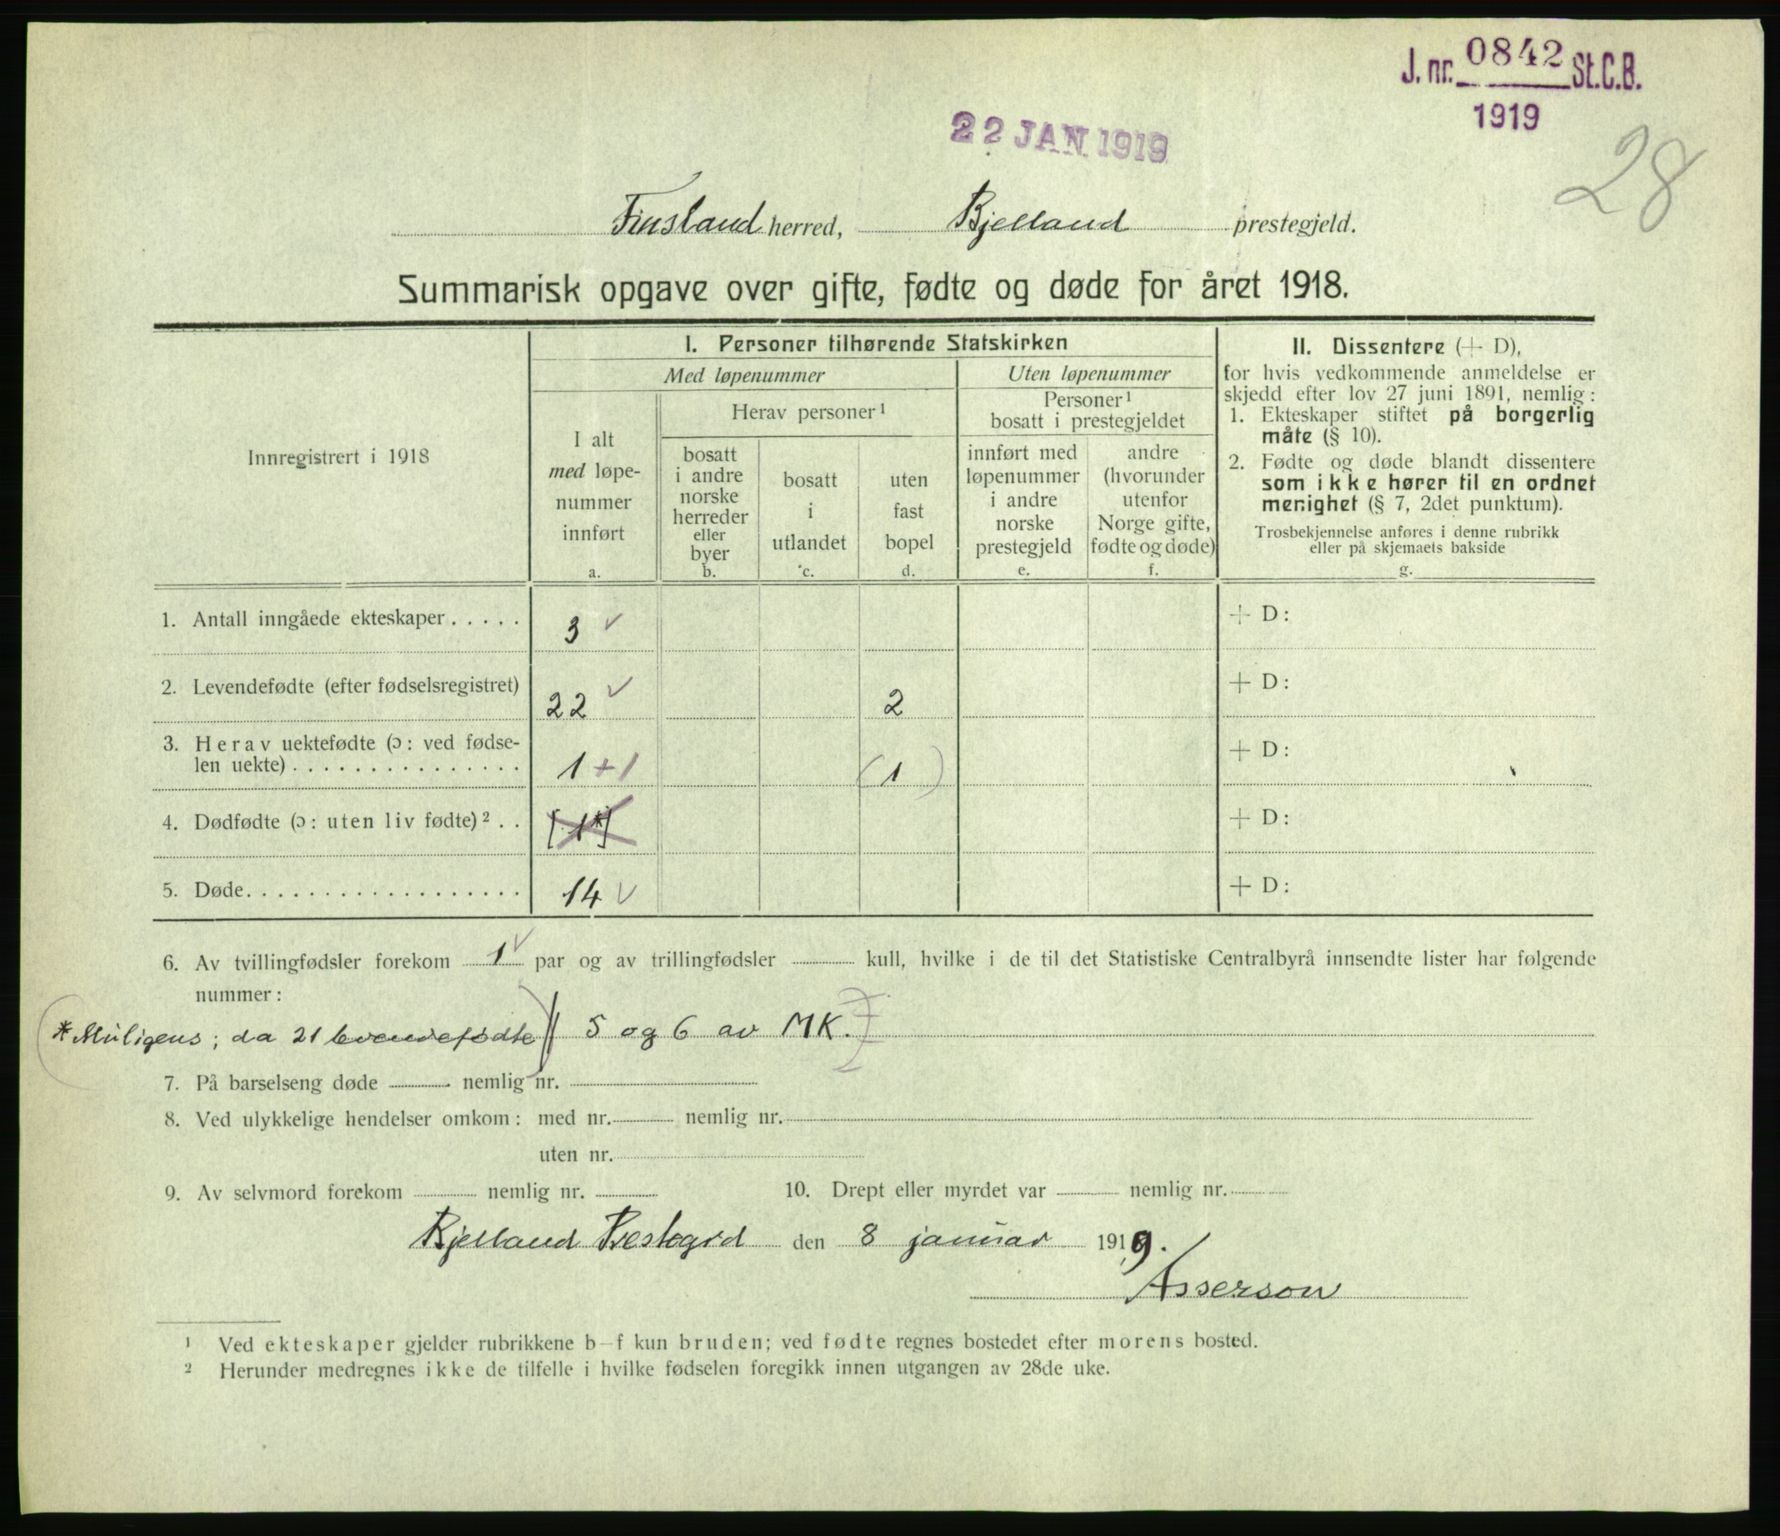 J. nr. 0842 St.C.B.
1919
22 JAN 1919
28
Finsland herred, Bjelland prestegjeld.
Summarisk opgave over gifte, fødte og døde for året 1918.
Innregistrert i 1918
I. Personer tilhørende Statskirken
Med løpenummer
I alt
med løpe-
nummer
innført
a.
Herav personer¹
bosatt
i andre
norske
herreder
eller
byer
b.
bosatt
i
utlandet
c.
uten
fast
bopel
d.
Uten løpenummer
Personer¹
bosatt i prestegjeldet
innført med
løpenummer
i andre
norske
prestegjeld
e.
andre
(hvorunder
utenfor
Norge gifte,
fødte og døde)
f.
II. Dissentere (+ D),
for hvis vedkommende anmeldelse er
skjedd efter lov 27 juni 1891, nemlig:
1. Ekteskaper stiftet på borgerlig
måte (§ 10).
2. Fødte og døde blandt dissentere
som ikke hører til en ordnet
menighet (§ 7, 2det punktum).
Trosbekjennelse anføres i denne rubrikk
eller på skjemaets bakside
g.
1. Antall inngåede ekteskaper..... 3 ✓ + D:
2. Levendefødte (efter fødselsregistret) 22 ✓ 2 + D:
3. Herav uektefødte (ɔ: ved fødse-
len uekte)............... 1 + 1 (1) + D:
4. Dødfødte (ɔ: uten liv fødte)².. [1*] + D:
5. Døde.................. 14 ✓ + D:
6. Av tvillingfødsler forekom 1 ✓ par og av trillingfødsler kull, hvilke i de til det Statistiske Centralbyrå innsendte lister har følgende
nummer:
(* Muligens; da 21 levendefødte) 5 og 6 av MK.
7. På barselseng døde nemlig nr.
8. Ved ulykkelige hendelser omkom: med nr. nemlig nr.
uten nr.
9. Av selvmord forekom nemlig nr. 10. Drept eller myrdet var nemlig nr.
Bjelland Prestegrd den 8 januar 1919.
Asserson
¹ Ved ekteskaper gjelder rubrikkene b–f kun bruden; ved fødte regnes bostedet efter morens bosted.
² Herunder medregnes ikke de tilfelle i hvilke fødselen foregikk innen utgangen av 28de uke.